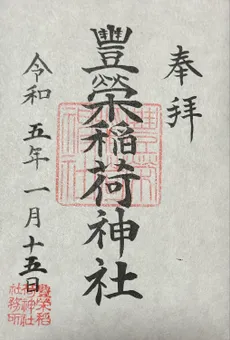 奉拝
豐榮稲荷神社
令和五年一月十五日
豐榮稻
荷神社
社務所